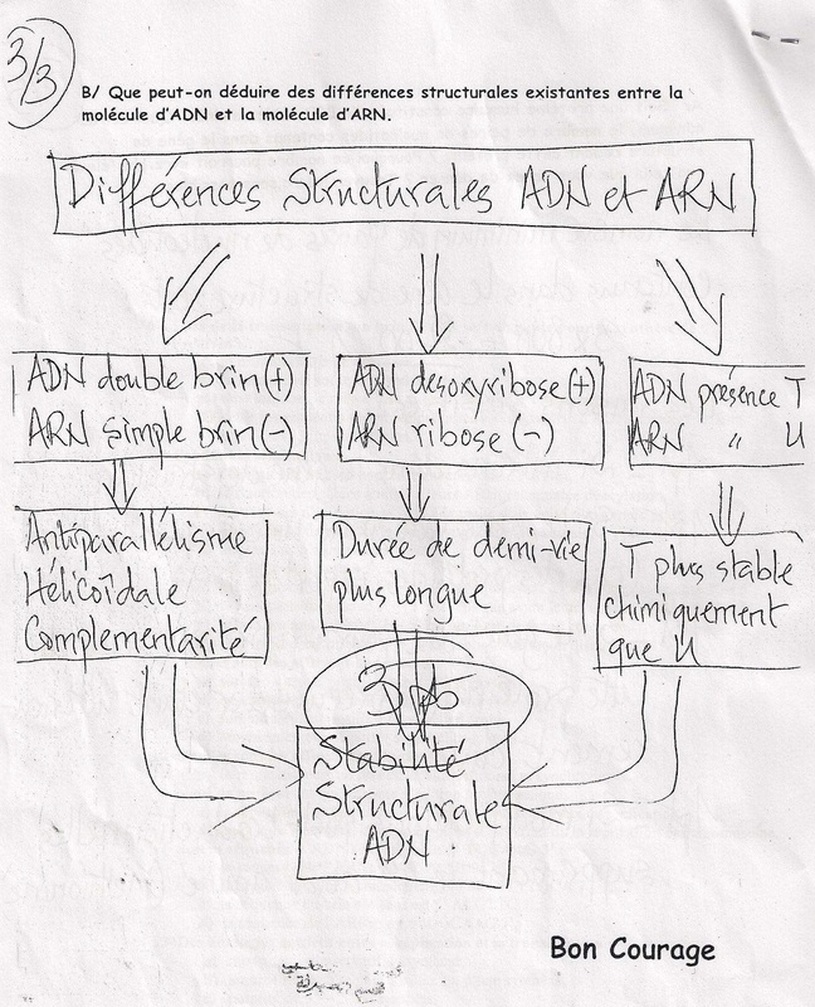 3/3
B/ Que peut-on déduire des différences structurales existantes entre la
molécule d'ADN et la molécule d'ARN.
Différences Structurales ADN et ARN
ADN double brin (+)
ARN simple brin (-)
ADN desoxyribose (+)
ARN ribose (-)
ADN présence T
ARN " U
Antiparallélisme
Hélicoïdale
Complementarité
Durée de demi-vie
plus longue
T plus stable
chimiquement
que U
Stabilité
Structurale
ADN
Bon Courage